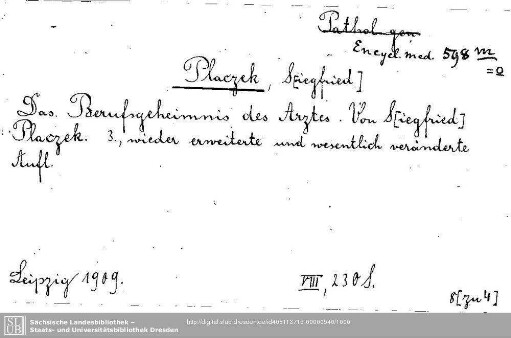 Pathol. gen
Encycl. med. 598 m
=2
Placzek, S[iegfried]
Das Berufsgeheimnis des Arztes. Von S[iegfried]
Placzek. 3., wieder erweiterte und wesentlich veränderte
Aufl.
Leipzig 1909.
VIII, 230 S.
8[zu4]
SLUB
Sächsische Landesbibliothek –
Staats- und Universitätsbibliothek Dresden